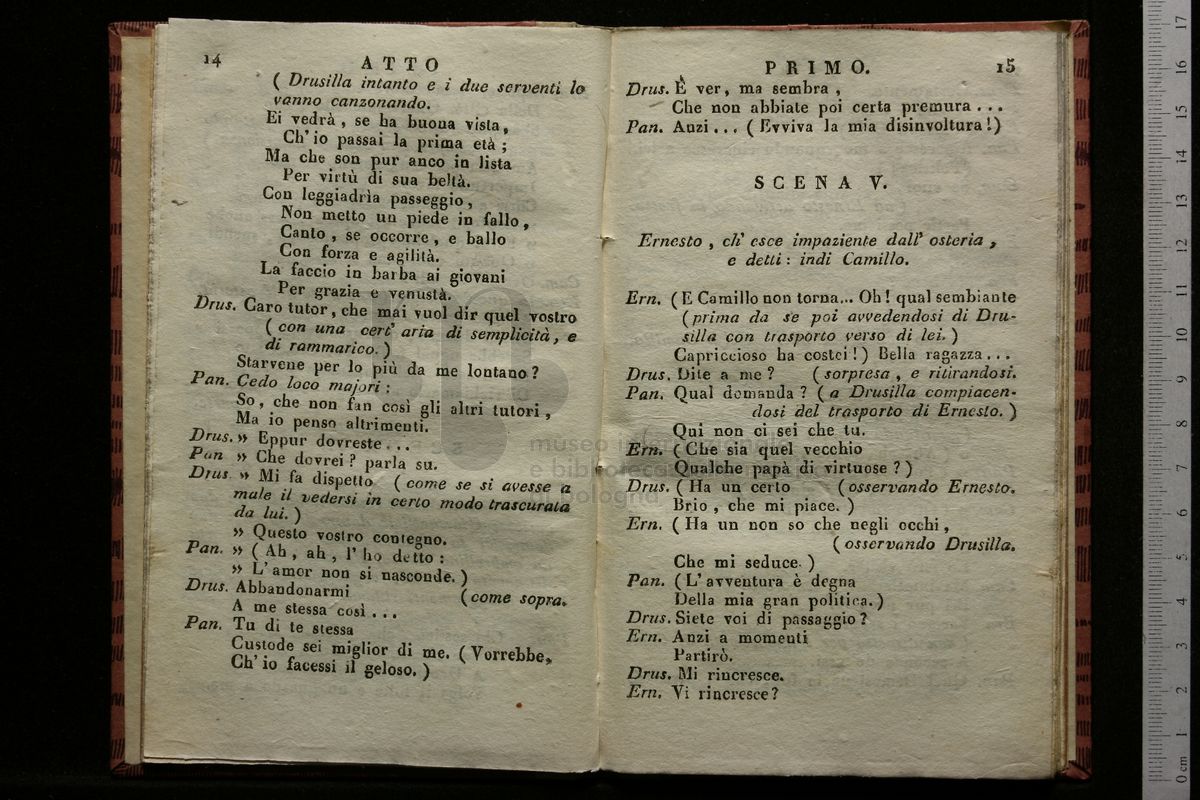 14
ATTO
( Drusilla intanto e i due serventi lo
vanno canzonando.
Ei vedrà, se ha buona vista,
Ch' io passai la prima età ;
Ma che son pur anco in lista
Per virtù di sua beltà.
Con leggiadrìa passeggio,
Non metto un piede in fallo,
Canto, se occorre, e ballo
Con forza e agilità.
La faccio in barba ai giovani
Per grazia e venustà.
Drus. Caro tutor, che mai vuol dir quel vostro
( con una cert' aria di semplicità, e
di rammarico. )
Starvene per lo più da me lontano ?
Pan. Cedo loco majori :
So, che non fan così gli altri tutori,
Ma io penso altrimenti.
Drus. » Eppur dovreste...
Pan » Che dovrei ? parla su.
Drus » Mi fa dispetto ( come se si avesse a
male il vedersi in certo modo trascurata
da lui. )
» Questo vostro contegno.
Pan. » ( Ah, ah, l' ho detto :
» L' amor non si nasconde. )
Drus. Abbandonarmi ( come sopra.
A me stessa così...
Pan. Tu di te stessa
Custode sei miglior di me. ( Vorrebbe,
Ch' io facessi il geloso. )
PRIMO.
15
Drus. È ver, ma sembra,
Che non abbiate poi certa premura...
Pan. Anzi... ( Evviva la mia disinvoltura ! )
SCENA V.
Ernesto, ch' esce impaziente dall' osteria,
e detti : indi Camillo.
Ern. ( E Camillo non torna... Oh ! qual sembiante
( prima da se poi avvedendosi di Dru-
silla con trasporto verso di lei. )
Capriccioso ha costei ! ) Bella ragazza...
Drus. Dite a me ? ( sorpresa, e ritirandosi.
Pan. Qual domanda ? ( a Drusilla compiacen-
dosi del trasporto di Ernesto. )
Qui non ci sei che tu.
Ern. ( Che sia quel vecchio
Qualche papà di virtuose ? )
Drus. ( Ha un certo ( osservando Ernesto.
Brio, che mi piace. )
Ern. ( Ha un non so che negli occhi,
( osservando Drusilla.
Che mi seduce. )
Pan. ( L' avventura è degna
Della mia gran politica. )
Drus. Siete voi di passaggio ?
Ern. Anzi a momenti
Partirò.
Drus. Mi rincresce.
Ern. Vi rincresce ?
museo internazionale
e biblioteca
di bologna
0 cm 1 2 3 4 5 6 7 8 9 10 11 12 13 14 15 16 17